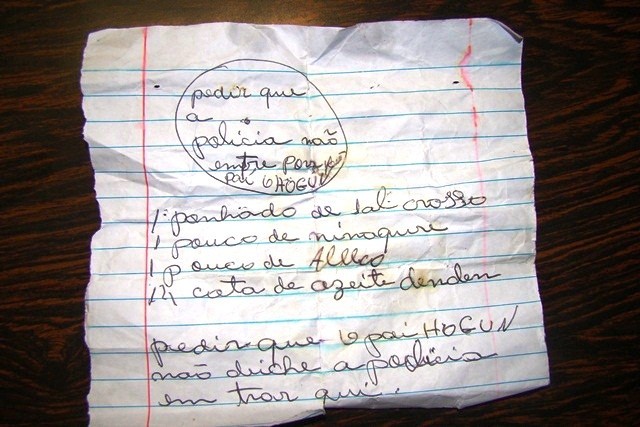 pedir que
a
policia não
entre por
pai OHOGUN
1 ponhado de sal grosso
1 pouco de ninagure
1 pouco de Allco
121 cota de azeite denden
pedir que o pai HOGUN
não deiche a policia
em trar qui.